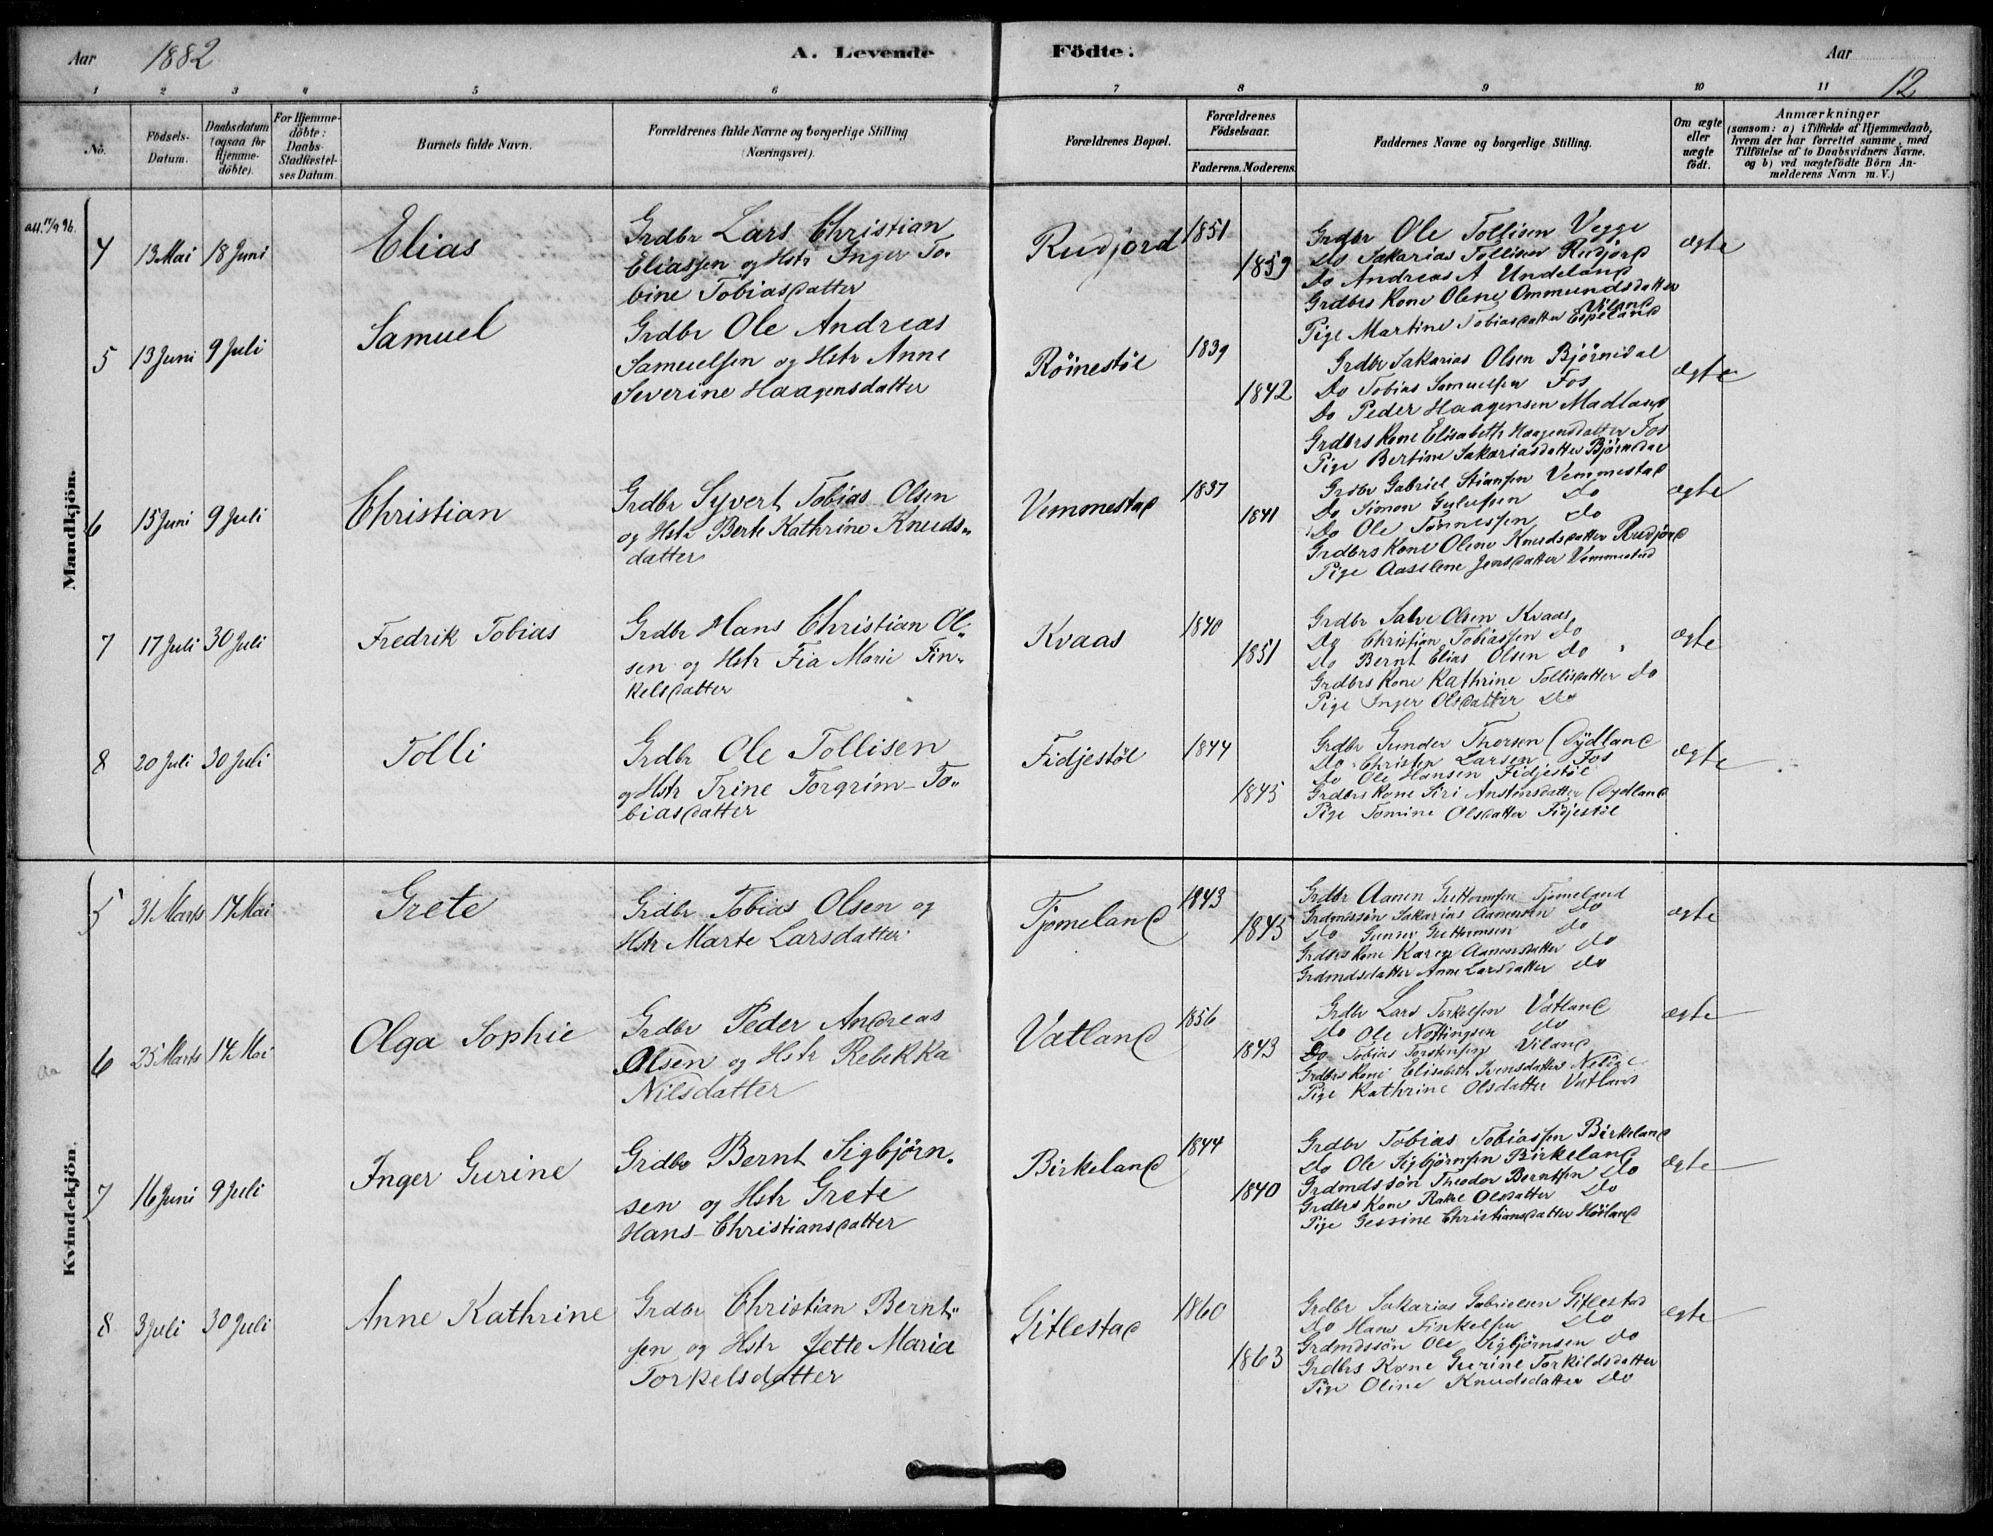 Aar 1882 A. Levende Födte. Aar 12
1 2 3 4 5 6 7 8 9 10 11
No.
Födsels-Datum.
Daabsdatum (ogsaa for Hjemmedöbte).
For Hjemmedöbte: Daabs-Stadfæstelses Datum.
Barnets fulde Navn.
Forældrenes fulde Navne og borgerlige Stilling (Næringsvei).
Forældrenes Bopæl.
Forældrenes Födselsaar.
Faderens. Moderens.
Faddernes Navne og borgerlige Stilling.
Om ægte eller uægte födt.
Anmærkninger
(saasom: a) i Tilfælde af Hjemmedaab, hvem der har forrettet samme, med Tilföielse af to Daabsvidners Navne, og b) ved uægtefödte Börn Anmelderens Navn m. V.)
Mandkjön.
att. 11/9 96.
4 13 Mai 18 Juni Elias
Grdbr Lars Christian
Eliassen og Hstr Inger To-
bine Tobiasdatter
Rudjord 1851 1859
Grdbr Ole Tollisen Vegge
Do Sakarias Tollisen Rudjord
Do Andreas A Undeland
Grdbrs Kone Olene Ommundsdatter Viland
Pige Martine Tobiasdatter Espeland
ægte
5 13 Juni 9 Juli Samuel
Grdbr Ole Andreas
Samuelsen og Hstr Anne
Severine Haagensdatter
Röinestöl 1839 1842
Grdbr Sakarias Olsen Bjørndal
Do Tobias Samuelsen Fos
Do Peder Haagensen Madland
Grdbrs Kone Elisabeth Haagensdatter Fos
Pige Bertine Sakariasdatter Bjørndal
ægte
6 15 Juni 9 Juli Christian
Grdbr Syvert Tobias Olsen
og Hstr Berte Kathrine Knuds-
datter
Vemmestad 1837 1841
Grdbr Gabriel Stiansen Vemmestad
Do Simon do
Do Ole Tønnessen do
Grdbrs Kone Olene Knudsdatter Rudjord
Pige Aaselene Jensdatter Vemmestad
ægte
7 17 Juli 30 Juli Fredrik Tobias
Grdbr Hans Christian Ol-
sen og Hstr Fia Marie Fin-
kelsdatter
Kvaas 1840 1851
Grdbr Salve Olsen Kvaas
Do Christian Tobiassen do
Do Bernt Elias Olsen do
Grdbrs Kone Kathrine Tollisdatter do
Pige Inger Olsdatter do
ægte
8 20 Juli 30 Juli Tolli
Grdbr Ole Tollisen
og Hstr Trine Torgrim-To-
biasdatter
Fidjestöl 1844 1845
Grdbr Gunder Thorsen Dydland
Do Christen Larsen Fos
Do Ole Hansen Fidjestöl
Grdbrs Kone Siri Anstensdatter Dydland
Pige Tomine Olsdatter Fidjestöl
ægte
Kvindekjön.
5 31 Marts 14 Mai Grete
Grdbr Tobias Olsen og
Hstr Marte Larsdatter
Tjomeland 1843 1845
Grdbr Aanen Guttormsen Tjomeland
Grdmdssön Sakarias Aanensen do
do Gunder Guttormsen do
Grdbrs Kone Karen Aanensdatter do
Grdmdsdatter Anne Larsdatter do
ægte
Aa
6 25 Marts 14 Mai Olga Sophie
Grdbr Peder Andreas
Olsen og Hstr Rebekka
Nilsdatter
Vatland 1856 1843
Grdbr Lars Torkelsen Vatland
do Ole do
Do Tobias Torstensen Viland
Grdbrs Kone Elisabeth
Pige Kathrine Olsdatter Vatland
ægte
7 16 Juni 9 Juli Inger Gurine
Grdbr Bernt Sigbjørn-
sen og Hstr Grete
Hans-Christiansdatter
Birkeland 1844 1840
Grdbr Tobias Tobiassen Birkeland
Do Ole Sigbjørnsen Birkeland
Grdmdssön Theodor Berntsen do
Grdbrs Kone Rakel Olsdatter do
Pige Gessine Christiansdatter Høiland
ægte
8 3 Juli 30 Juli Anne Kathrine
Grdbr Christian Bernt-
sen og Hstr Jette Maria
Torkelsdatter
Gitlestad 1860 1863
Grdbr Sakarias Gabrielsen Gitlestad
Do Hans Finkelsen do
Grdmdssön Ole Sigbjørnsen do
Grdbrs Kone Gurine Torkildsdatter
Pige Oline Knudsdatter do
ægte